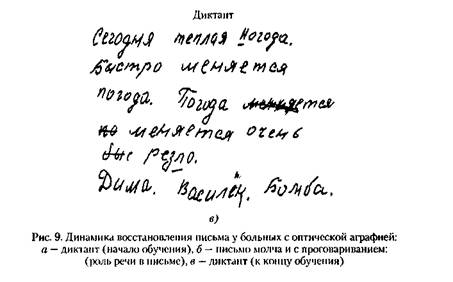 Диктант
Сегодня теплая погода.
Быстро меняется
погода. Погода меняется
но меняется очень
быс резло.
Дима. Василек. Бомба.
в)
Рис. 9. Динамика восстановления письма у больных с оптической аграфией:
а — диктант (начало обучения), б — письмо молча и с проговариванием:
(роль речи в письме), в — диктант (к концу обучения)